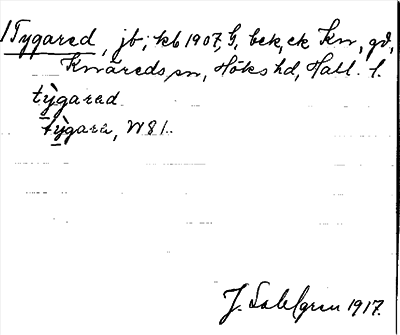 /Tygared, jb; kb 1907, G, bek, ek Kn, gd,
Knäreds sn, Höks hd, Hall. l.
tỳgared
tỳgara, W81.
J. Sahlgren 1917.